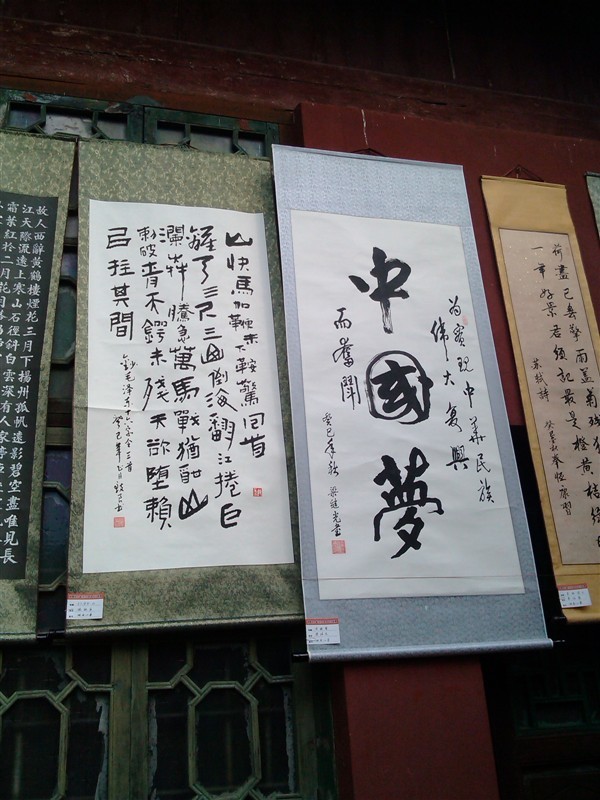 故人西辭黄鶴樓煙花三月下揚州孤帆遠影碧空盡唯見長
江天際流遠上寒山石徑斜白雲深有人家停
霜葉紅於二月花
山快馬加鞭未下鞍驚回首
離天三尺三山倒海翻江捲巨
瀾奔騰急萬馬戰猶酣山
刺破青天鍔未殘天欲墮賴
以拄其間
鈔毛澤東十六字令三首
癸巳年
为實现中华民族
伟大复興
中國夢
而奮鬥
癸巳年秋
荷盡已無擎雨蓋菊殘猶
一年好景君須記最是橙黄橘緑
蘇軾詩